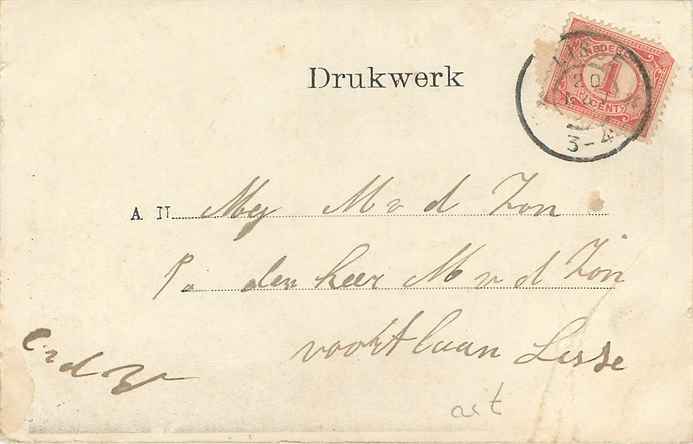 Drukwerk
NEDERL
1
CENT
20
3-4
AN Mej M v d Zon
P. den heer M v d Zon
voortlaan Lisse
art